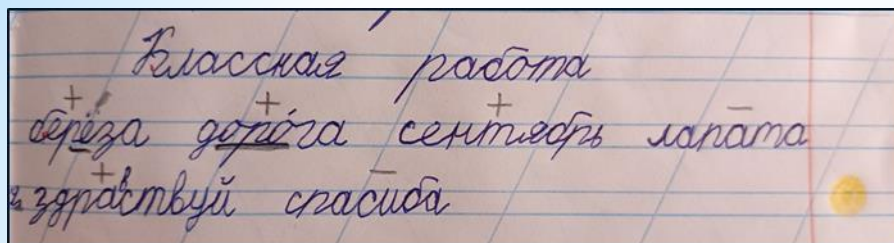 Классная работа
берёза доро́га сентябрь лапата
здравствуй спасиба